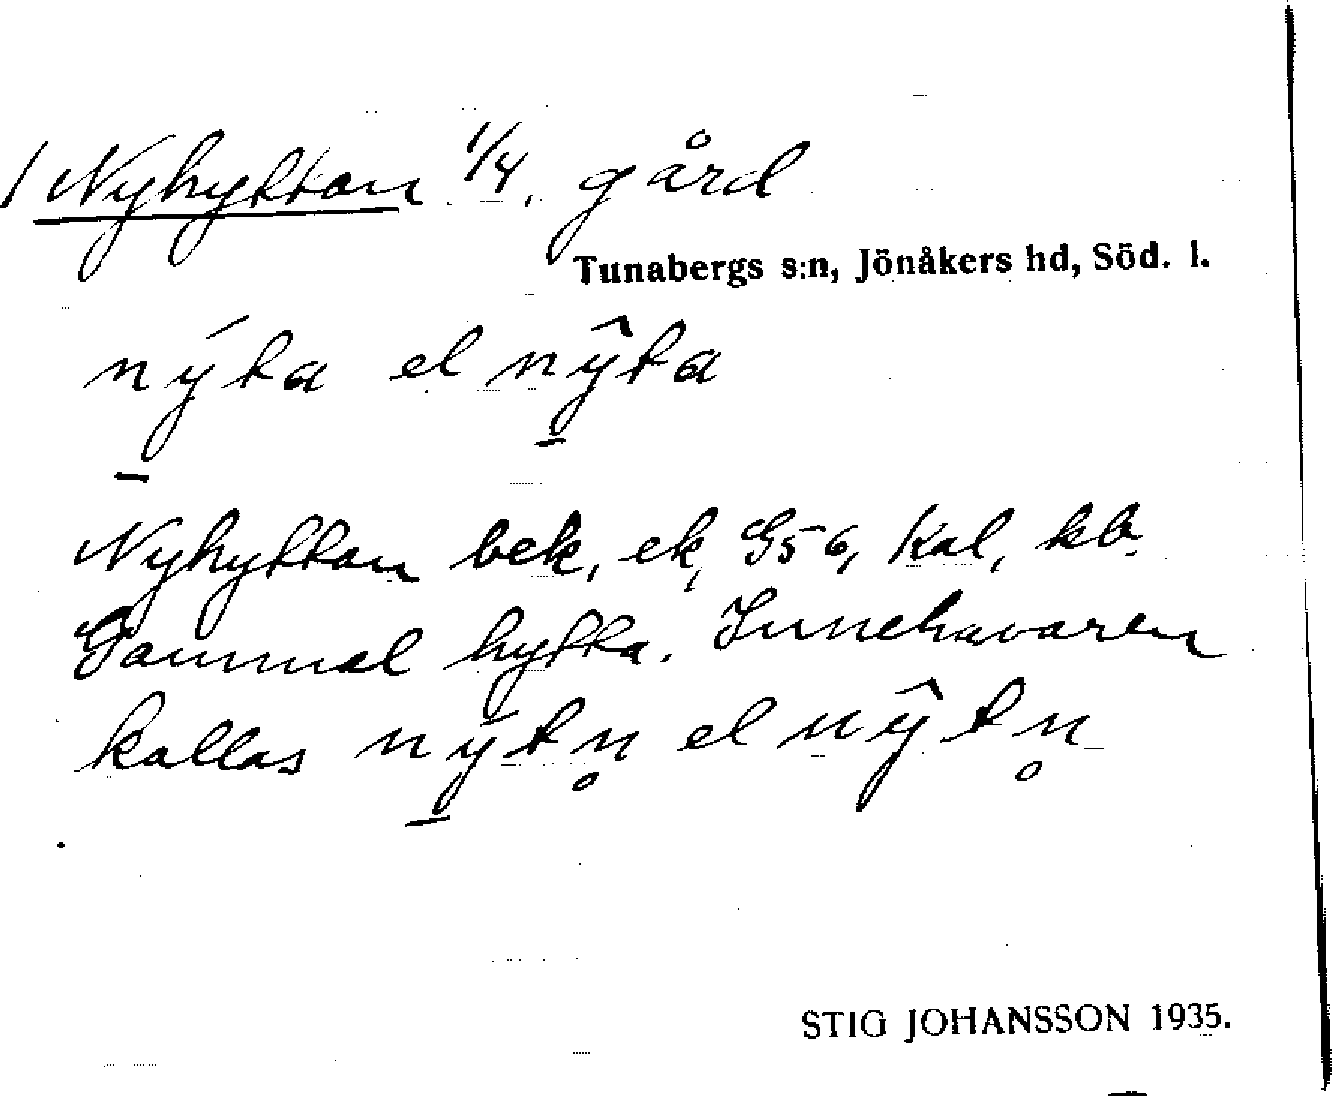 / Nyhyttan 1/4, gård
Tunabergs s:n, Jönåkers hd, Söd. l.
nýta el nŷta
Nyhyttan bek, ek, G56, Kal, kb.
Gammal hytta. Innehavaren
kallas nýtn̥ el nŷtn̥
STIG JOHANSSON 1935.